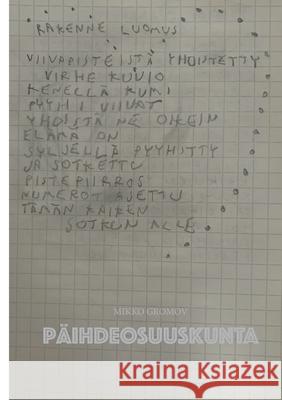 RAKENNE LUOMUS
VIIVAPISTEISTÄ YHDISTETTY
VIRHE KUVIO
KENELLÄ KUMI
PYYHI VIIVAT
YHDISTÄ NE OIKEIN
ELÄMÄ ON
SYLJELLÄ PYYHITTY
JA SOTKETTU
PISTEPIIRROS
NUMEROT ASETTU
TÄMÄN KAIKEN
SOTKUN ALLE
MIKKO GROMOV
PÄIHDEOSUUSKUNTA